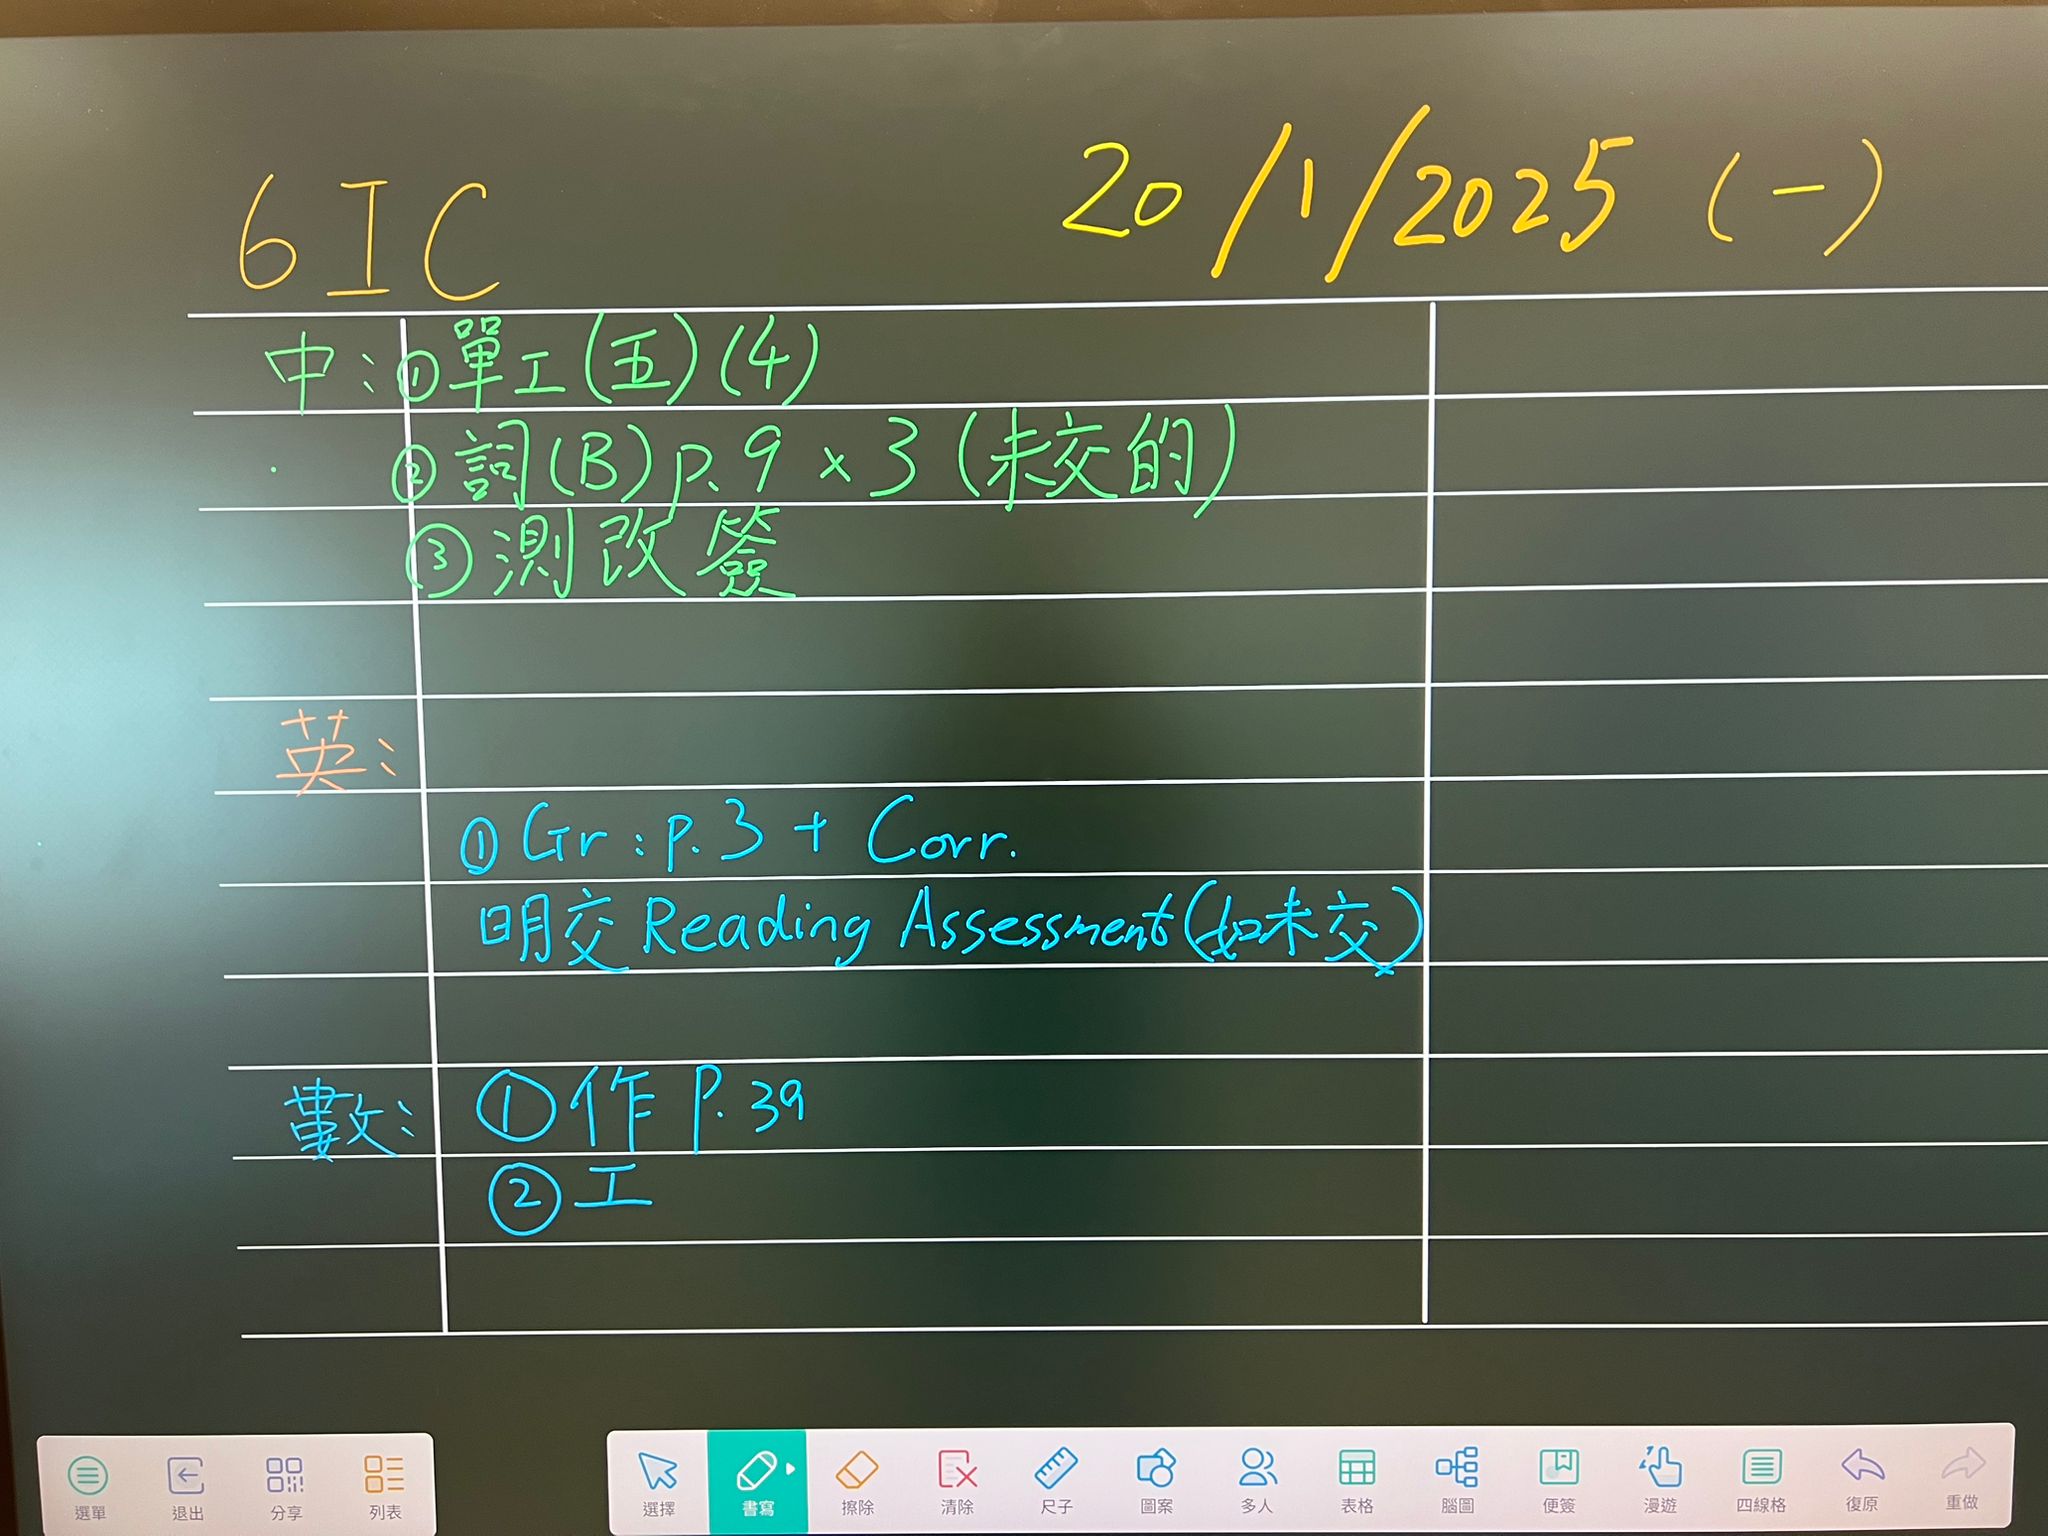 6IC
20/1/2025 (一)
中：①單工(五)(4)
②詞(B) p.9 x 3 (未交的)
③測改簽
英：
①Gr : p.3 + Corr.
明交 Reading Assessment (如未交)
數：①作 P.39
②工
選單 退出 分享 列表 選擇 書寫 擦除 清除 尺子 圖案 多人 表格 腦圖 便簽 漫遊 四線格 復原 重做